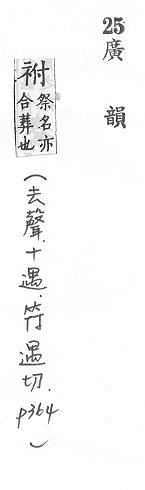 25
廣韻
祔祭名亦合葬也
(去聲.十遇.符遇切.p364)